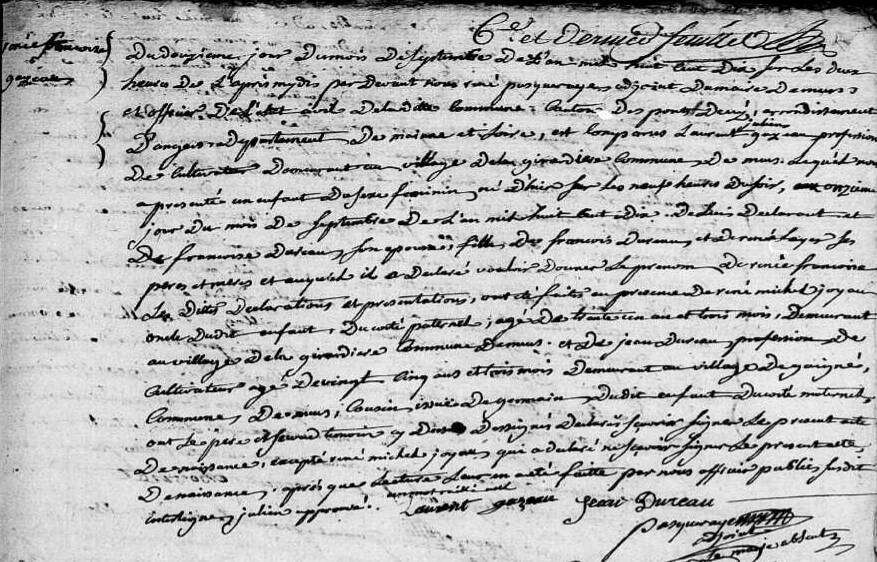 6e et dernier feuillet
renée francoise
gazeau
Du douzieme jour du mois de Septembre De L'an mil huit cent Dix Sur Les deux
heures De L'apres mydis par devant nous rené pasqueraye adjoint Du maire De mus
et officier De L'etat civil De la ditte Commune Canton Des ponts De cé, arrondissement
D'angers Departement De maine et Loire, est Comparus Laurent julien gazeau profession
De Cultivateur Demeurant au village De la girardiere Commune De mus. Lequel nous
a presenté un enfant Du sexe feminin, né D'hier Sur Les neuf heures Du soir, onzieme
jour Du mois De Septembre De L'an mil huit cent Dix. De Luis Declarant et
De francoise Dureau, Son epouse, fille De francois Dureau, et De renée Ses
peres et meres et auquel il a Declaré vouloir Donner Le prenom De renée francoise
Les Dittes Declarations et presentations, ont été faites en presence De rené michel joyau
oncle Dudit enfant, Du coté paternel, agé De trente un an et trois mois, Demeurant
au village De la girardiere Commune De mus. et De jean Dureau profession De
Cultivateur agé De vingt Cinq ans et trois mois Demeurant au village De
Commune De mus, Cousin issue De germain Dudit enfant Du coté maternel,
ont Le père et Second temoin cy Dessignés Declarés Scavoir Signer Le present acte
De naissance, excepté rené michel joyau qui a declaré ne Scavoir Signer Le present acte
De naissance. apres que Lecture Leur en a été faitte par nous officier publics Susdit
julien approuvé. nul
Laurent gazeau Jean Dureau
Pasqueraye
adjoint
Le maire absent